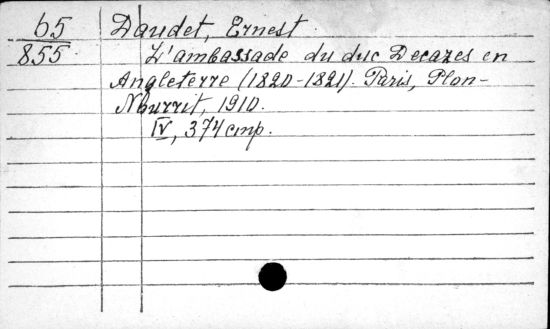 65
855
Daudet, Ernest.
L'ambassade du duc Decazes en
Angleterre (1820-1821). Paris, Plon-
Nourrit, 1910.
IV, 374 стр.